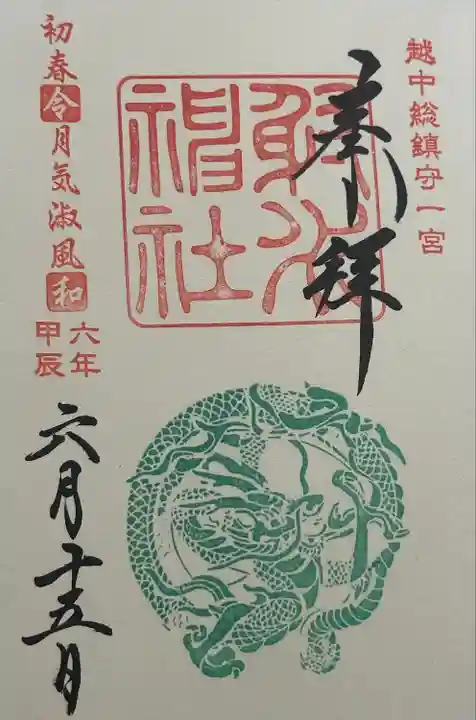 越中総鎮守一宮
奉拝
射水
神社
初春令月気淑風和
六年
甲辰
六月十五日